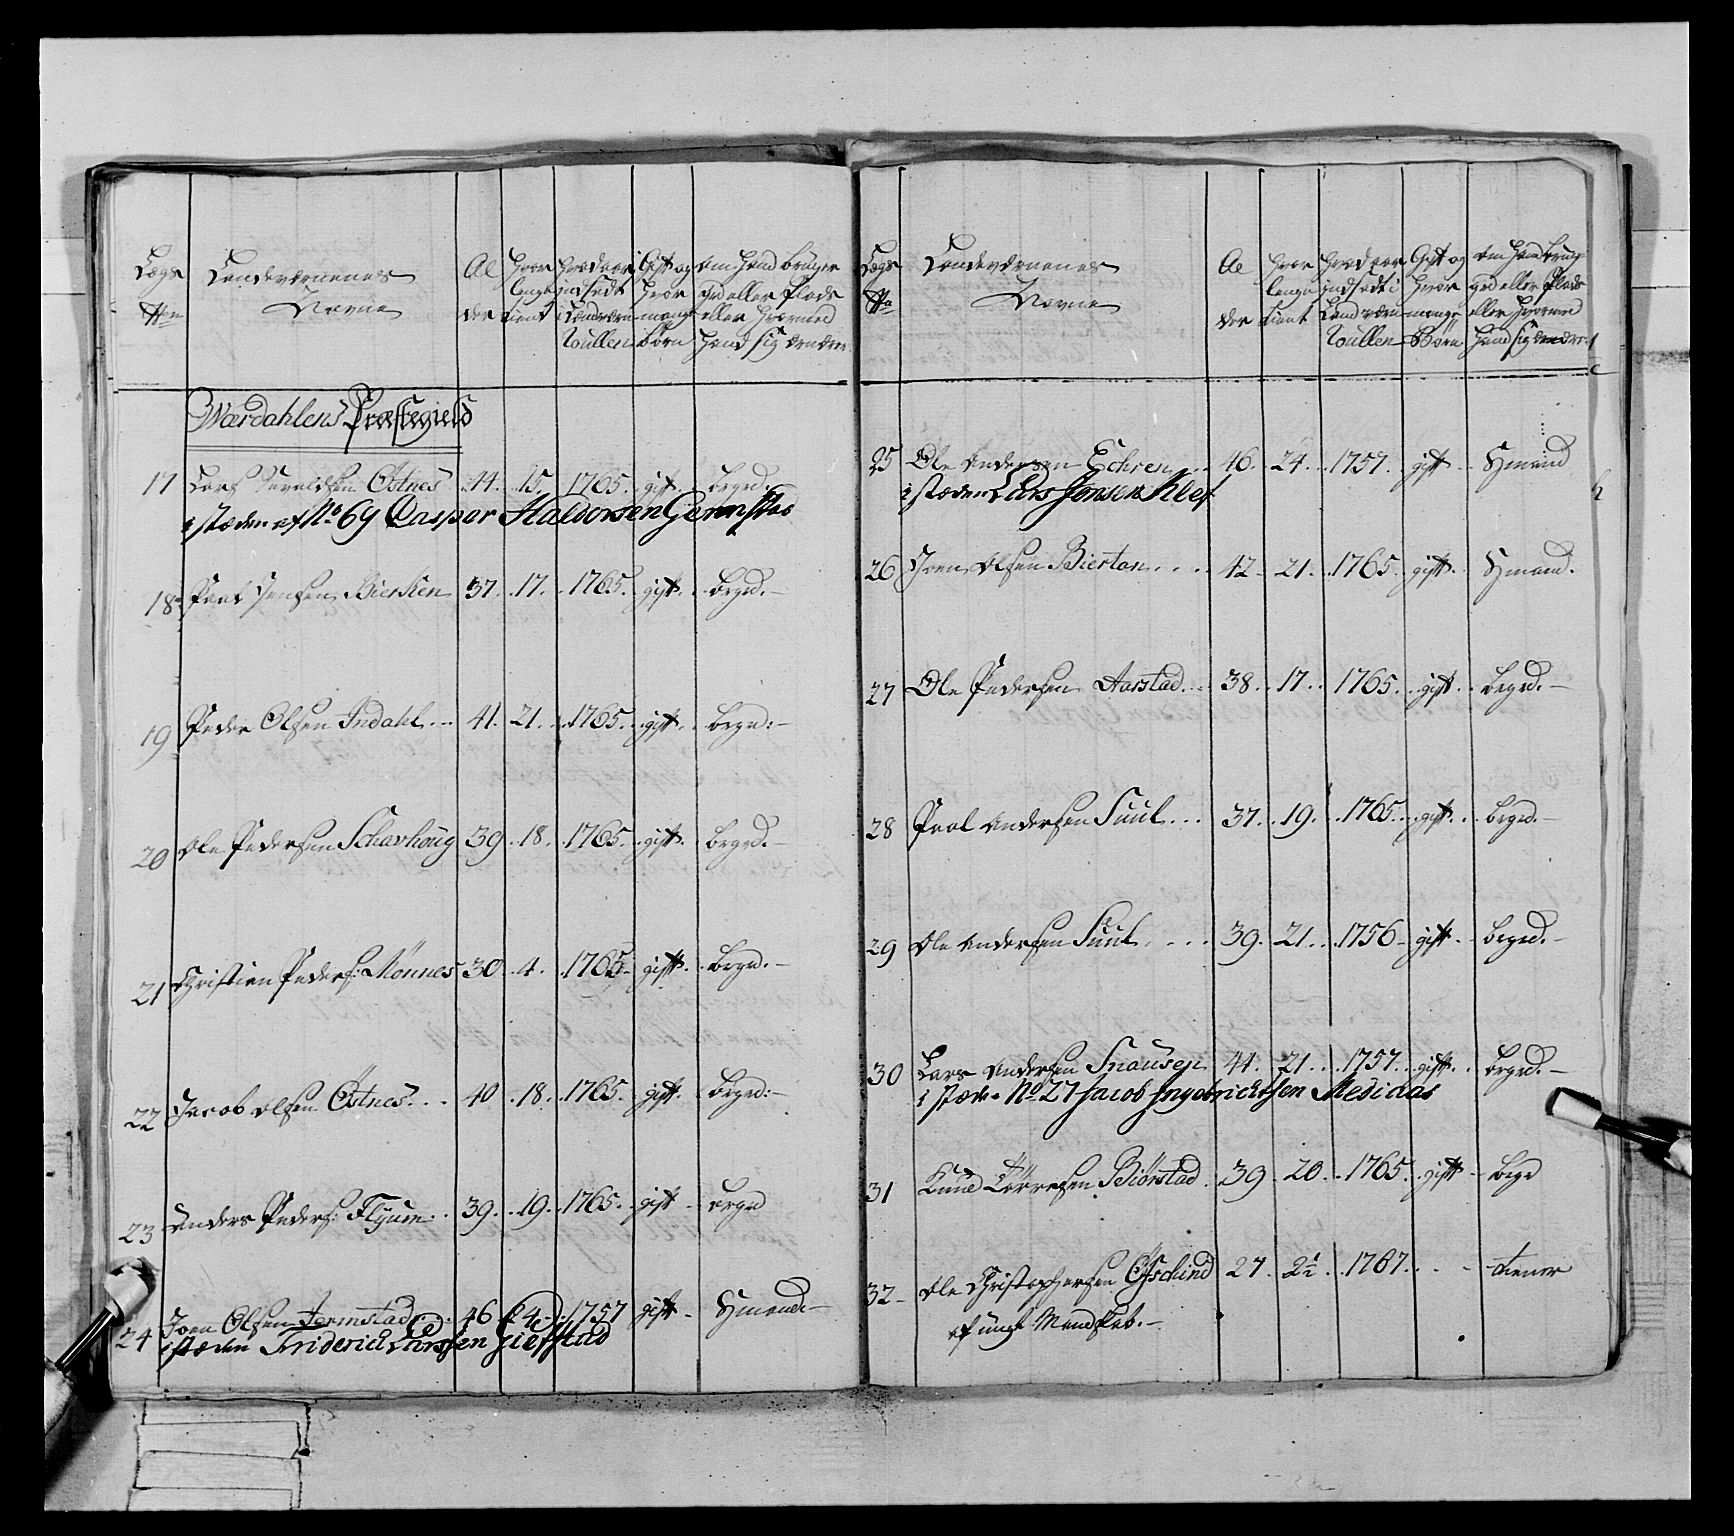 Lægs No
Landeværnenes Navne
Al der
Hvor lenge tient
Hvad aar indsadt i Landværn Roullen
Gift og Hvor mange børn
om Hand bruger Grd eller Plads eller Hvormed Hand sig ernærer
Værdahlens Præstegield
17 Lars Østnes 44. 15. 1765. gift. brger.
i stæden af No 69 Casper Haldorsen Germstad
18 Paal Jensen Bierken 37. 17. 1765. gift. brgrd.
19 Peder Olsen Indahl 41. 21. 1765. gift. brgrd:
20 Ole Pedersen Schavhoug 39. 18. 1765. gift. brgrd.
21 Christian Peders: Mønnes 30. 4. 1765. gift. brgrd.
22 Jacob Olsen Østnes 40. 18. 1765. gift. brgrd:
23 Anders Peders: Flyum 39. 19. 1765. gift brgrd
24 Joen Olsen Jermstad 46 24 1757 gift Hmand
i stæden Friderich Larsen Gielstad
Lægs No
Landeværnenes Navne
Al der
Hvor lenge tient
Hvad aar indsadt i Landværn Roullen
Gift og Hvor mange Børn
om Hand brug. grd eller Plads eller Hvormed Hand sig ernærer
25 Ole Andersen Echren 46. 24. 1757. gift Hmand
i stæden Lars Jonsen Klef
26 Joen Olsen Biertan 42 21. 1765. gift. Hmand.
27 Ole Pedersen Aarstad 38. 17. 1765. gift. brgrd.
28 Paal Andersen Suul 37. 19. 1765. gift. brgrd.
29 Ole Andersen Suul 39. 21. 1756 gift brgrd.
30 Lars Andersen Snausen 44. 21. 1757. gift. brgrd.
i stæde No 27 Jacob Ingebrichtsen Mediaas
31 Knud Tørresen Biørstad 39 20. 1765. gift brgr
32 Ole Christophersen 27. 2½ 1767. tiener
af unge Mandskab.